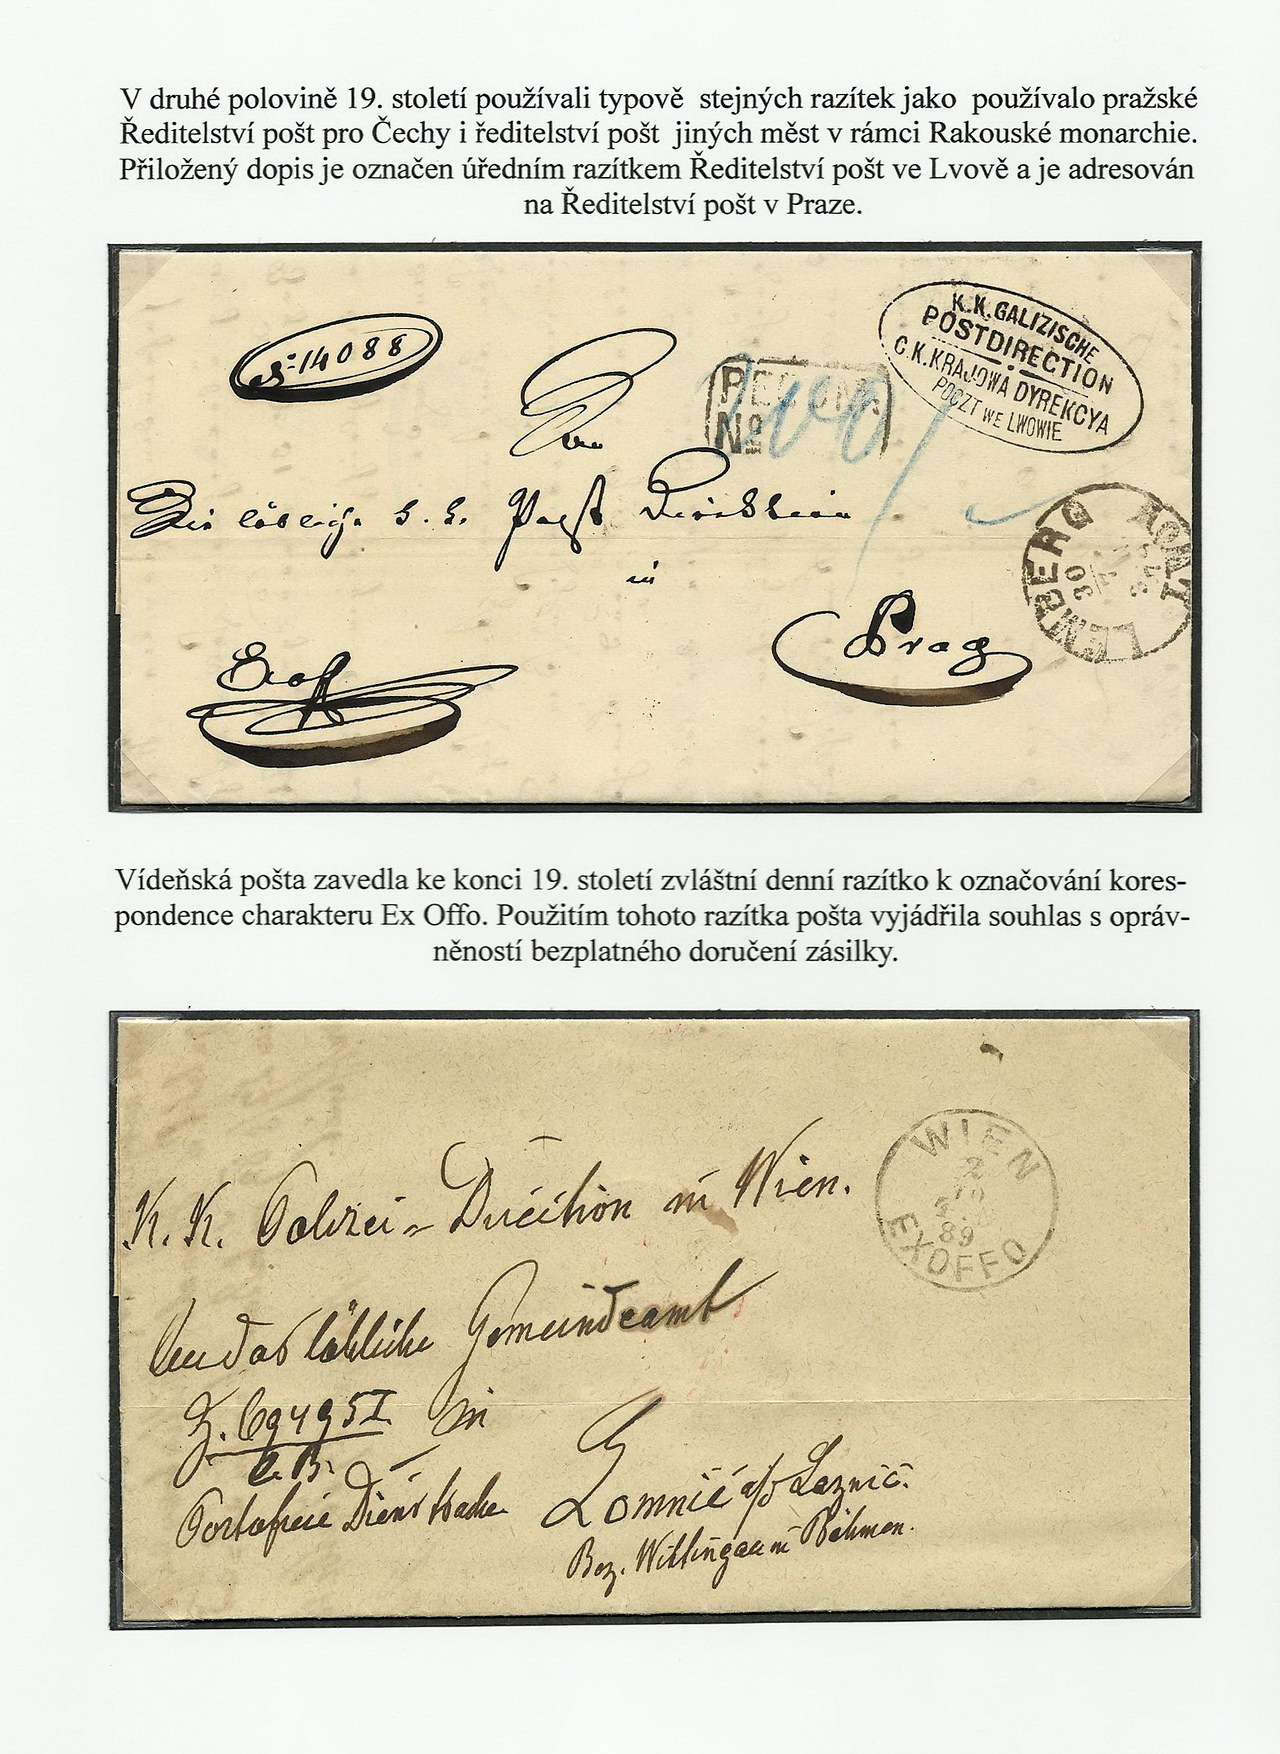 V druhé polovině 19. století používali typově stejných razítek jako používalo pražské
Ředitelství pošt pro Čechy i ředitelství pošt jiných měst v rámci Rakouské monarchie.
Přiložený dopis je označen úředním razítkem Ředitelství pošt ve Lvově a je adresován
na Ředitelství pošt v Praze.
K.K. GALIZISCHE
POSTDIRECTION
C.K. KRAJOWA DYREKCYA
POCZT WE LWOWIE
14088
An
Die löbliche k. k. Post Direktion
No
in
LEMBERG
Prag
Vídeňská pošta zavedla ke konci 19. století zvláštní denní razítko k označování kores-
pondence charakteru Ex Offo. Použitím tohoto razítka pošta vyjádřila souhlas s opráv-
něností bezplatného doručení zásilky.
WIEN
89
EXOFFO
K. K. Polizei-Direction in Wien.
An das löbliche Gemeindeamt
Z. 69495 I in
Portofreie Dienstsache
Lomnic a/d Laznic.
Bez. Wittingau in Böhmen.